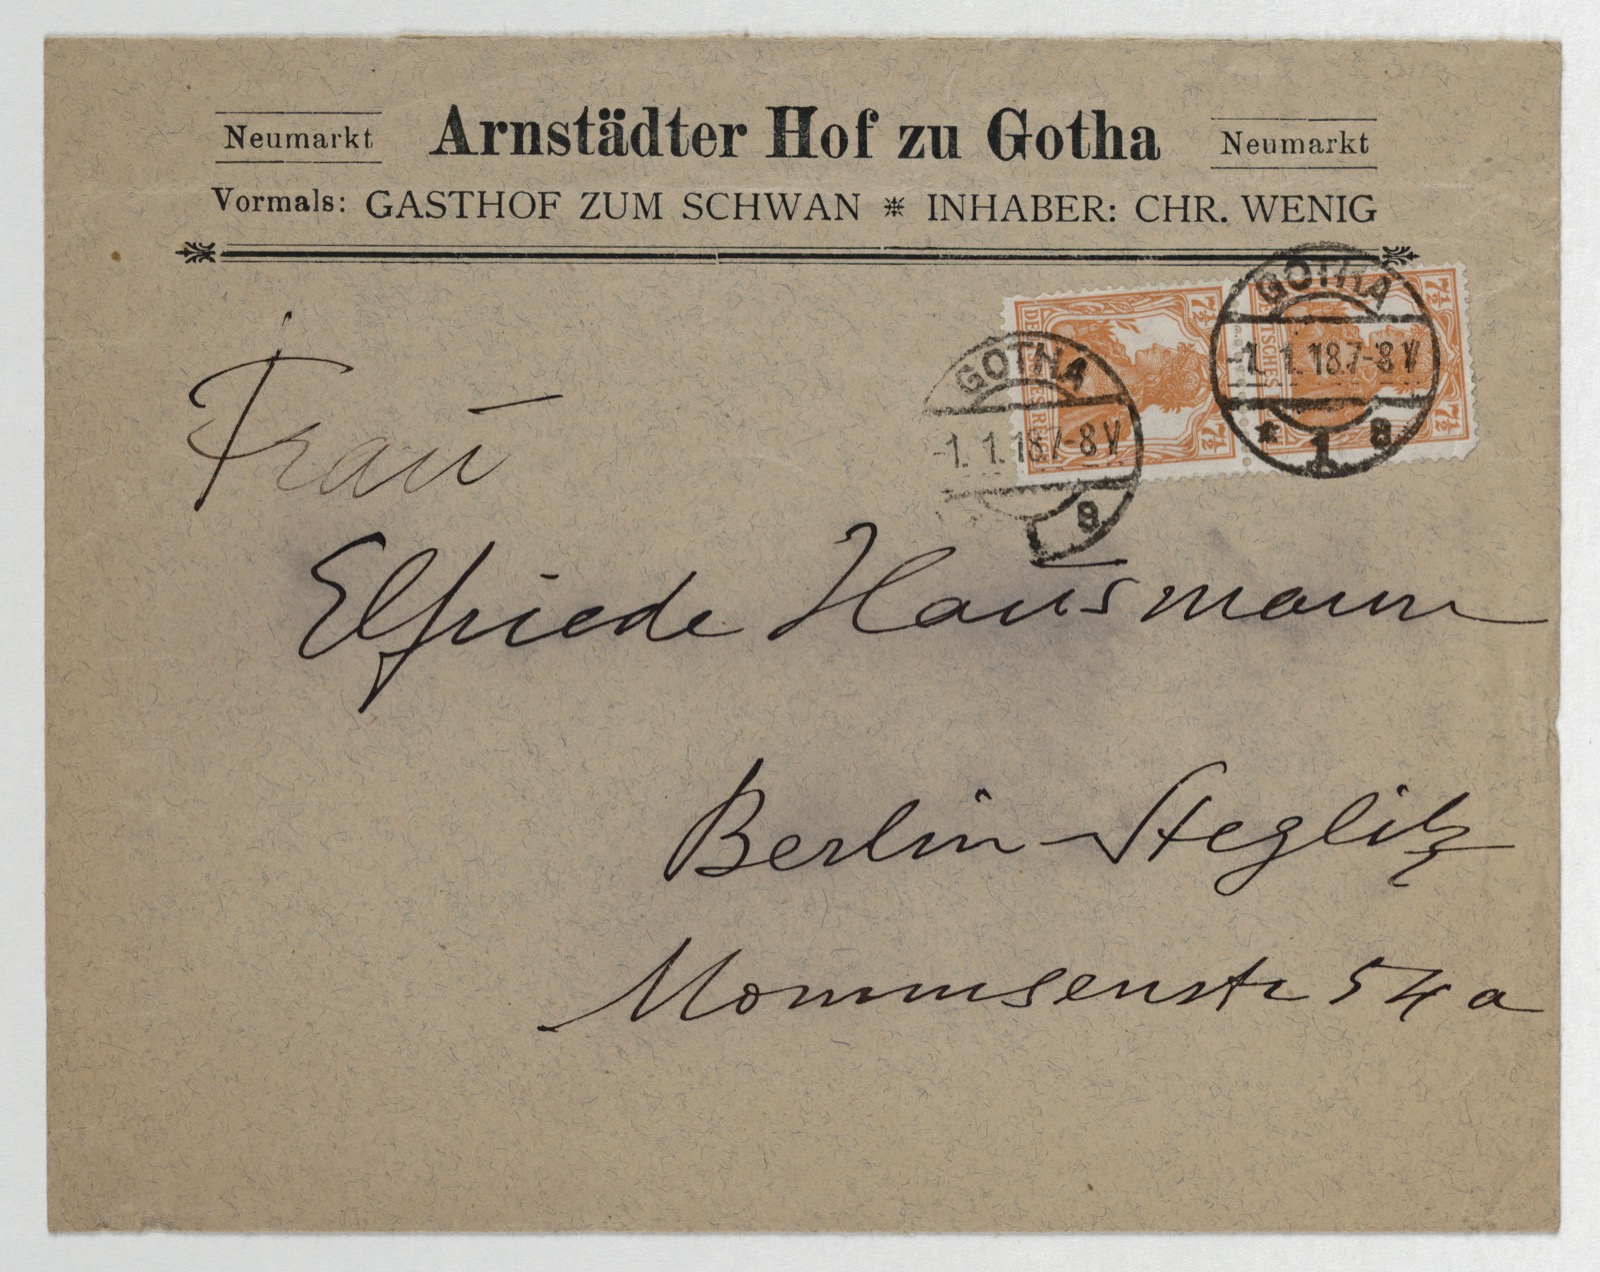 Neumarkt Arnstädter Hof zu Gotha Neumarkt
Vormals: GASTHOF ZUM SCHWAN * INHABER: CHR. WENIG
GOTHA
-1. 1.18.7-8 V
* 1 a
DEUTSCHES REICH
7½ 7½
GOTHA
-1. 1.18.7-8 V
a
DEUTSCHES REICH
7½ 7½
Frau
Elfriede Hausmann
Berlin-Steglitz
Mommsenstr 54a